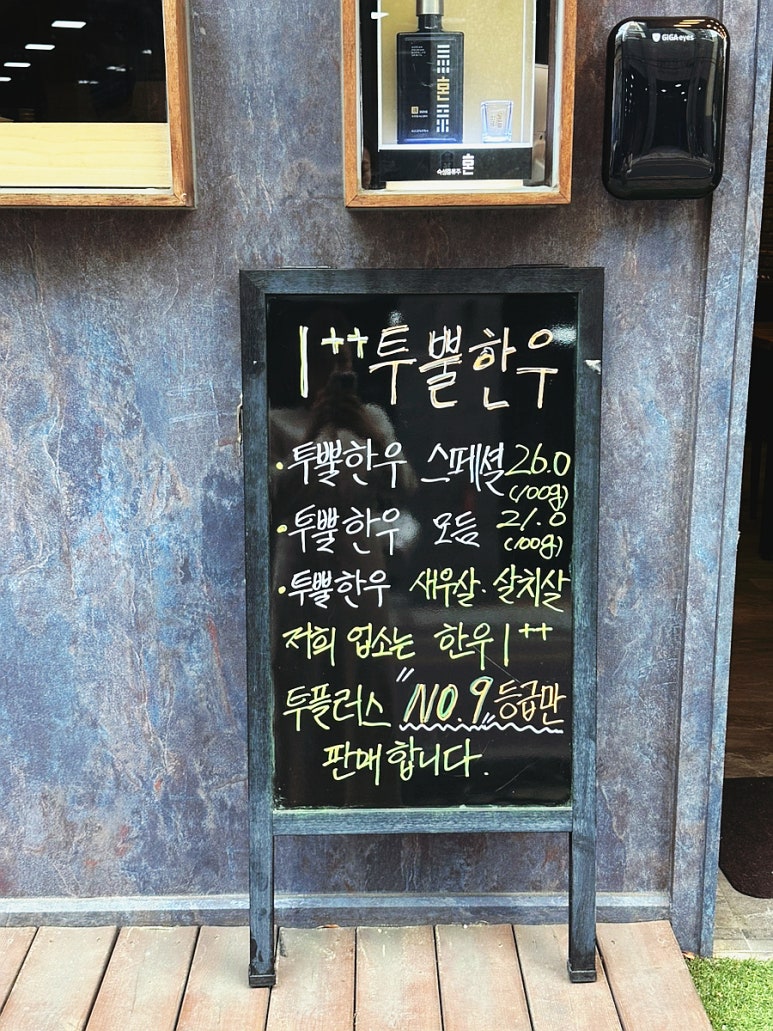 GiGAeyes
혼
혼
1++투뿔한우
·투뿔한우 스페셜 26.0
(100g)
·투뿔한우 모듬 21.0
(100g)
·투뿔한우 새우살·살치살
저희 업소는 한우1++
투플러스 "NO.9" 등급만
판매합니다.